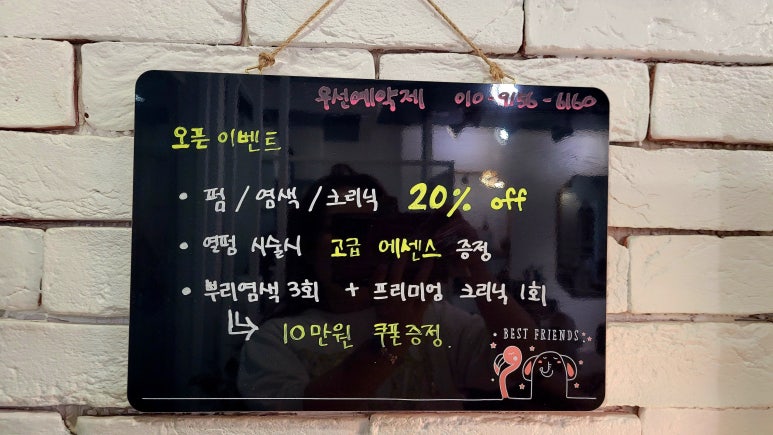 우선예약제 010-9156-6160
오픈 이벤트
• 펌 / 염색 / 크리닉 20% off
• 열펌 시술시 고급 에센스 증정
• 뿌리염색 3회 + 프리미엄 크리닉 1회
↳ 10만원 쿠폰증정.
BEST FRIENDS